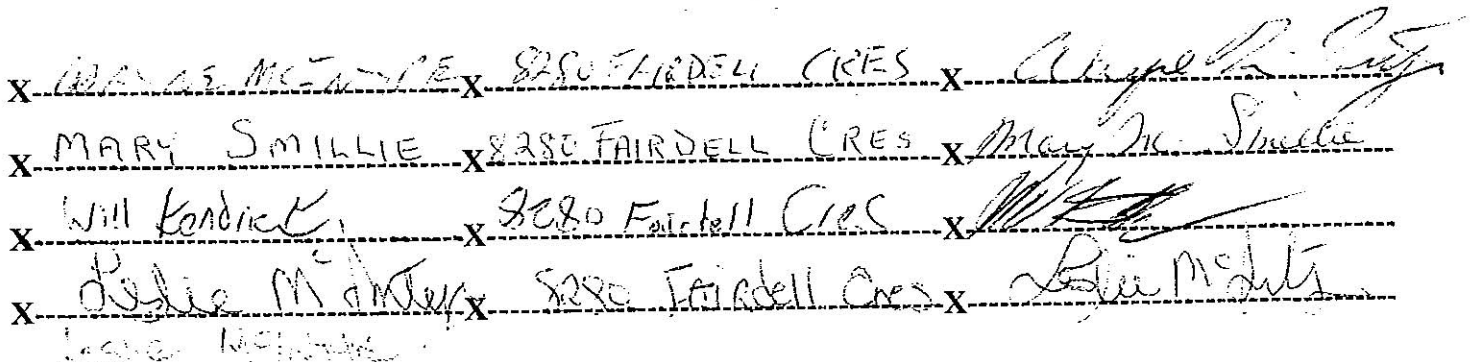 X WAYNE MCINTYRE X 8280 FAIRDELL CRES X
X MARY SMILLIE X 8280 FAIRDELL CRES X Mary M. Smillie
X Will Kendrick X 8280 Fairdell Cres X
X Leslie McIntyre X 8280 Fairdell Cres X Leslie McInty
Leslie McIntyre